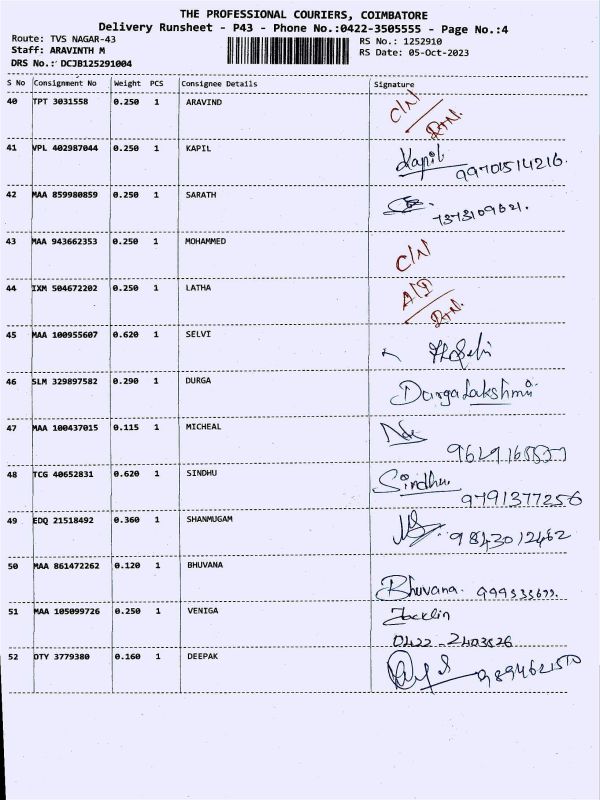 THE PROFESSIONAL COURIERS, COIMBATORE
Delivery Runsheet - P43 - Phone No.:0422-3505555 - Page No.:4
Route: TVS NAGAR-43 RS No.: 1252910
Staff: ARAVINTH M RS Date: 05-Oct-2023
DRS No.: DCJB125291004
S No Consignment No Weight PCS Consignee Details Signature
40 TPT 3031558 0.250 1 ARAVIND C/N
RTN.
41 VPL 402987044 0.250 1 KAPIL Kapil
9970514216.
42 MAA 859980859 0.250 1 SARATH
7373109621.
43 MAA 943662353 0.250 1 MOHAMMED C/N
44 IXM 504672202 0.250 1 LATHA A/D
RTN.
45 MAA 100955607 0.620 1 SELVI
46 SLM 329897582 0.290 1 DURGA Durga Lakshmi
47 MAA 100437015 0.115 1 MICHEAL
48 TCG 40652831 0.620 1 SINDHU Sindhu
9791377256
49 EDQ 21518492 0.360 1 SHANMUGAM 9843012462
50 MAA 861472262 0.120 1 BHUVANA
Bhuvana.
51 MAA 105099726 0.250 1 VENIGA Jacklin
0422-2403526
52 DTY 3779380 0.160 1 DEEPAK